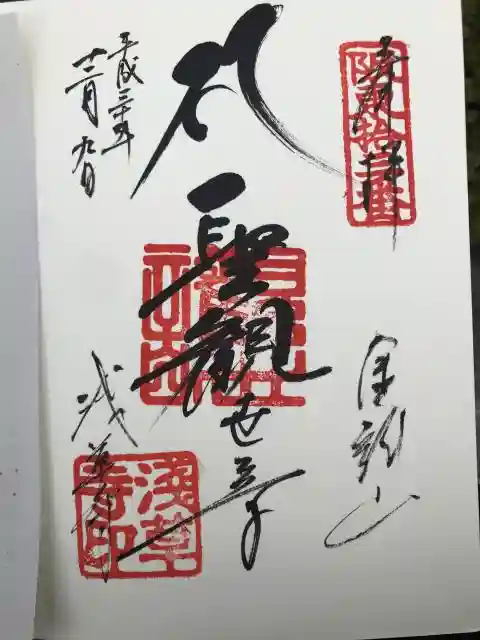 奉拝
阪東拾三番
金龍山
聖観世音
平成三十年
十二月九日
浅草寺
淺草寺印